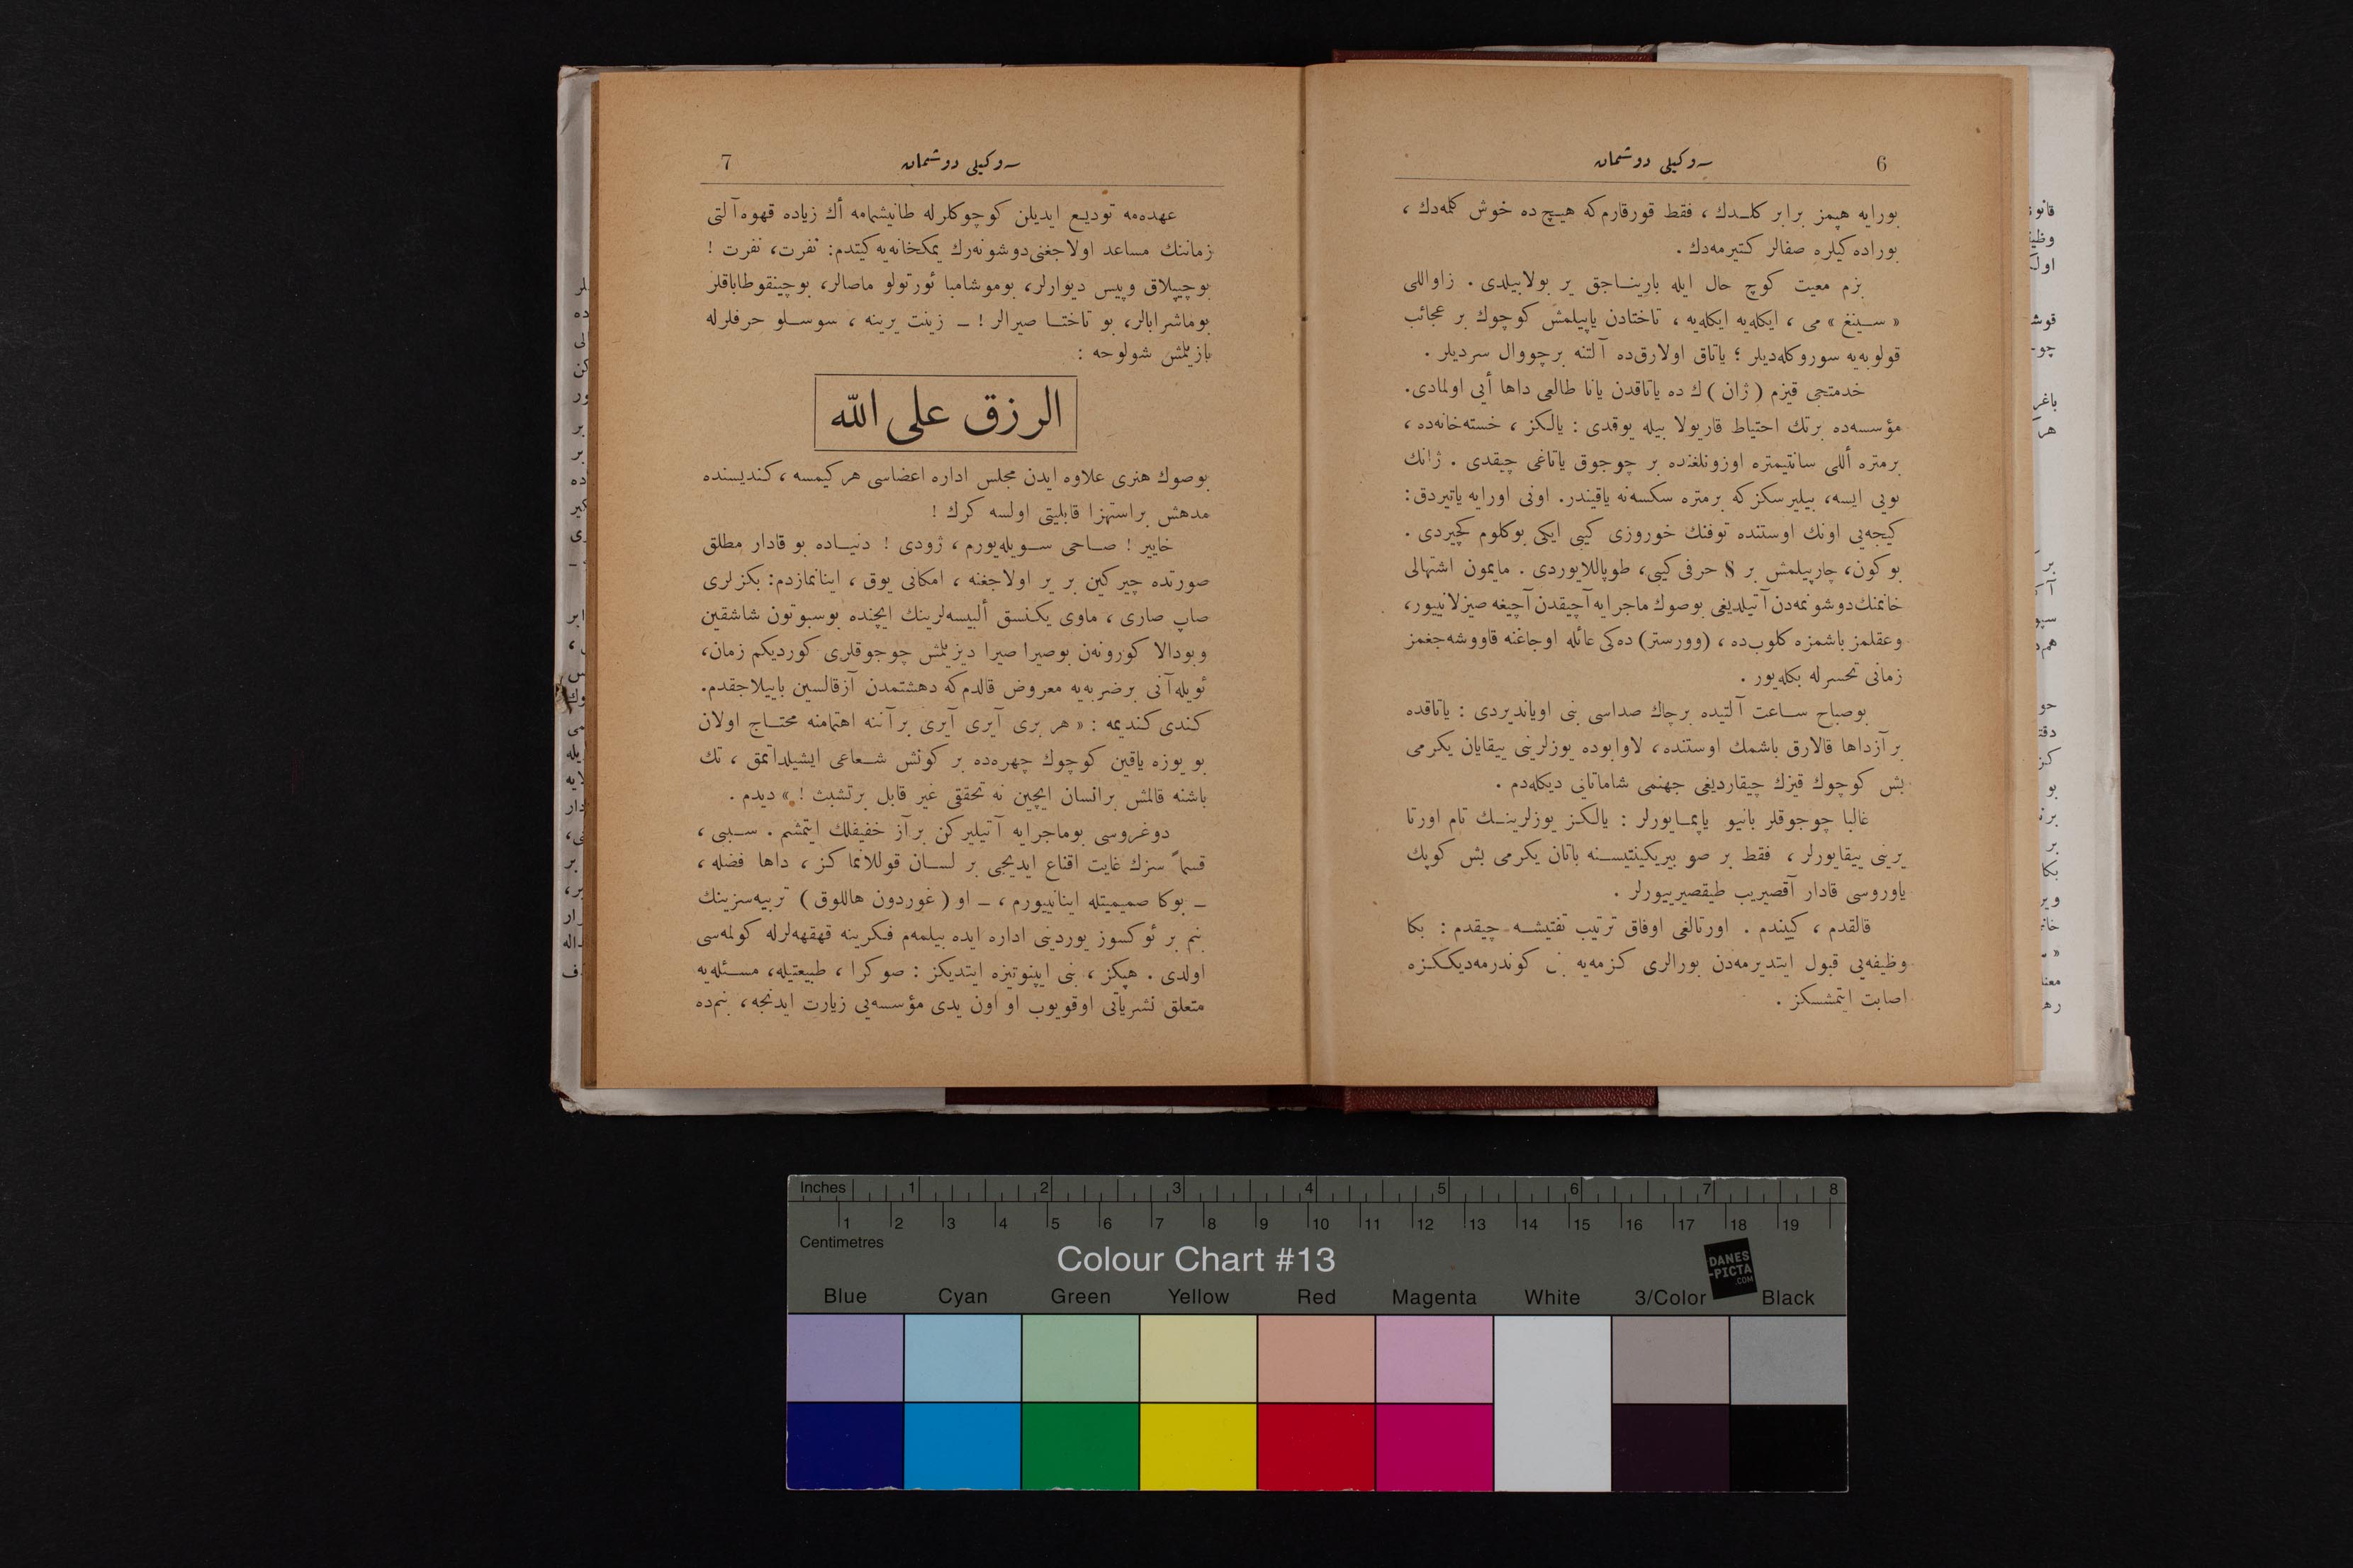 6
سه‌وكيلى دوشمان
بورايه هپمز برابر كلـدك ، فقط قورقارم‌كه هيـچ ده خوش كلمه‌دك ،
بوراده‌كيلره صفالر كتيرمه‌دك .
بزم معيت كوچ حال ايله بارينـاجق ير بولابيلدى . زاواللى
« سـينغ » مى ، ايكله‌يه ايكله‌يه ، تاختادن ياپيلمش كوچوك بر عجائب
قولوبه‌يه سوروكله‌ديلر ؛ ياتاق اولارق‌ده آلتنه برچووال سرديلر .
خدمتجى قيزم ( ژان ) ك ده ياتاقدن يانا طالعى داها أيى اولمادى.
مؤسسه‌ده برتك احتياط قاريولا بيله يوقدى : يالكز ، خسته‌خانه‌ده ،
برمتره أللى سانتيمتره اوزونلغنده بر چوجوق ياتاغى چيقدى . ژانك
بويى ايسه، بيليرسكزكه برمتره سكسه‌نه ياقيندر. اونى اورايه ياتيردق :
كيجه‌يى اونك اوستنده توفنك خوروزى كيبى ايكى بوكلوم كچيردى .
بوكون، چارپيلمش بر S حرفى‌كيبى، طوپاللايوردى . مايمون اشتهالى
خانمنك‌دوشونمه‌دن آتيلديغى بوصوك ماجرايه آچيقدن آچيغه صيزلانييور،
وعقلمز باشمزه كلوب‌ده ، (وورستر) ده‌كى عائله اوجاغنه قاووشه‌جغمز
زمانى تحسرله بكله‌يور .
بوصباح سـاعت آلتيده برچاك صداسى بنى اويانديردى : ياتاقده
بر آزداها قالارق باشمك اوستنده، لاوابوده يوزلرينى ييقايان يكرمى
بش كوچوك قيزك چيقارديغى جهنمى شاماتايى ديكله‌دم .
غالبا چوجوقلر بانيو ياپمـايورلر : يالكـز يوزلرينـك تام اورتا
يرينى ييقايورلر ، فقط بر صو بيريكينتيسـنه باتان يكرمى بش كوپك
ياوروسى قادار آقصيريب طيقصيرييورلر .
قالقدم ، كييندم . اورتالغى اوفاق ترتيب تفتيشـه چيقدم : بكا
وظيفه‌يى قبول ايتديرمه‌دن بورالرى كزمه‌يه كوندرمه‌ديككـزه
اصابت ايتمشسكز .
7
سه‌وكيلى دوشمان
عهده‌مه توديـع ايديلن كوچوكلرله طانيشمامه أك زياده قهوه‌آلتى
زماننك مساعد اولاجغنى‌دوشونه‌رك يمكخانه‌يه‌كيتدم: نفرت، نفرت !
بوچيپلاق وپيس ديوارلر، بوموشامبا ئورتولو ماصالر، بوچينقوطاباقلر
بوماشرابالر، بو تاختـا صيرالر ! ــ زينت يرينه ، سوسـلو حرفلرله
يازيلمش شولوحه :
الرزق على الله
بوصوك هنرى علاوه ايدن مجلس اداره اعضاسى هركيمسه ، كنديسنده
مدهش براستهزا قابليتى اولسه كرك !
خايير ! صـاحى سـويله‌يورم ، ژودى ! دنيـاده بو قادار مطلق
صورتده چيركين بر ير اولاجغنه ، امكانى يوق ، اينانمازدم: بكزلرى
صاپ صارى ، ماوى يكنسق ألبيسه‌لرينك ايچنده بوسبوتون شاشقين
وبودالا كورونه‌ن بوصيرا صيرا ديزيلمش چوجوقلرى كورديكم زمان،
ئويله‌آنى برضربه‌يه معروض قالدم‌كه دهشتمدن آزقالسين باييلاجقدم.
كندى كنديمه : « هر برى آيرى آيرى بر آننه اهتمامنه محتـاج اولان
بو يوزه ياقين كوچوك چهره‌ده بر كونش شـعاعى ايشيلداتمق ، تك
باشنه قالمش برانسان ايچين نه تحققى غير قابل برتشبث ! » ديدم .
دوغروسى بوماجرايه آتيليركن برآز خفيفلك ايتمشم . سـببى ،
قسماً سزك غايت اقناع ايديجى بر لسـان قوللانماكز ، داها فضله ،
ــ بوكا صميميتله اينانييورم ، ــ او ( غوردون هاللوق ) تربيه‌سزينك
بنم بر ئوكسوز يوردينى اداره ايده بيلمه‌م فكرينه قهقهه‌لرله كولمه‌سى
اولدى . هپكز ، بنى ايپنوتيزه ايتديكز : صوكرا ، طبيعتيله، مسـئله‌يه
متعلق نشرياتى اوقويوب او اون يدى مؤسسه‌يى زيارت ايدنجه ، بنم‌ده
Inches 1 2 3 4 5 6 7 8
1 2 3 4 5 6 7 8 9 10 11 12 13 14 15 16 17 18 19
Centimetres
Colour Chart #13
DANES
-PICTA
.COM
Blue Cyan Green Yellow Red Magenta White 3/Color Black